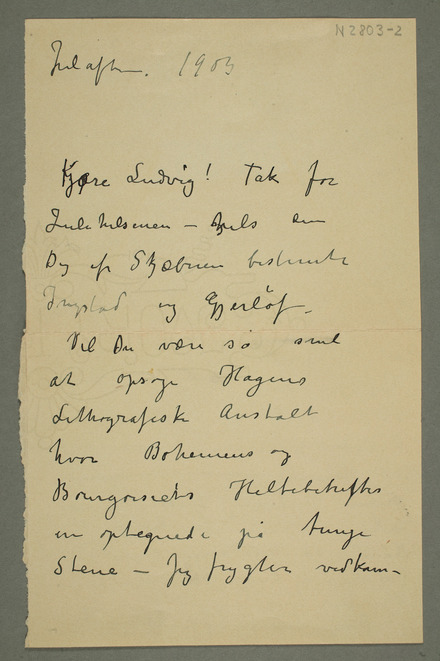 N2803-2
Juleaften. 1903
Kjære Ludvig! Tak for
Julehilsenen – hils den
Dig af Skjæbnen bestemte
og Gjerløf.
Vil Du være så snil
at opsøge Hagens
Lithografiske Anstalt
hvor Bohemens og
Bourgoisiets Heltebedrifter
er optegnede på tunge
Stene – Jeg frygter vedkom-